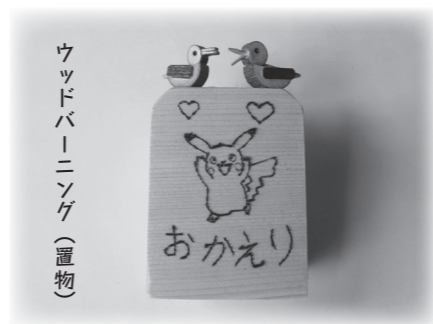 ウッドバーニング（置物）
おかえり